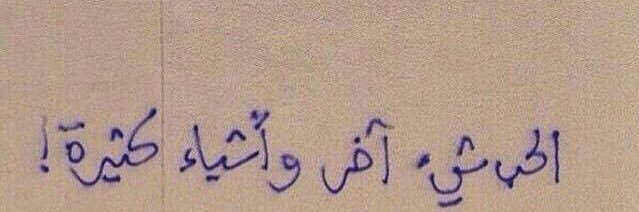 الحب شيء آخر وأشياء كثيرة!